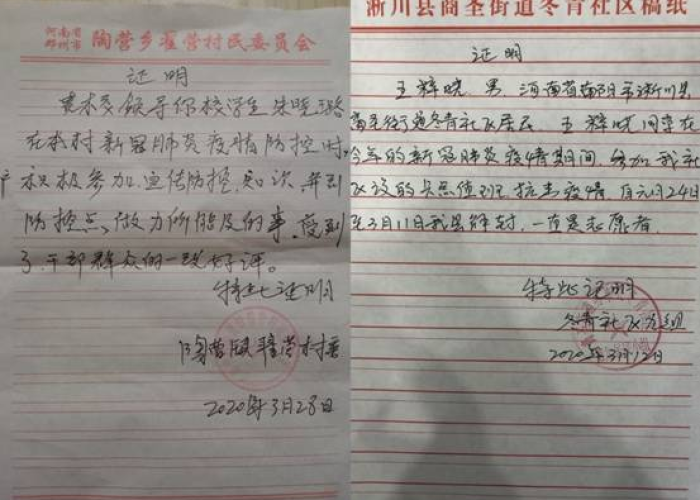 河南省
邓州市
陶营乡崔营村民委员会
证明
贵校领导你校学生朱晓璐
在本村新冠肺炎疫情防控时,
积极参加,宣传防控,知识,并到
防控点,做力所能及的事。受到
了,干部群众的一致好评。
特此证明
陶营乡崔营村委
2020年3月28日
淅川县商圣街道冬青社区稿纸
证明
王 晓,男,河南省南阳市淅川县
商圣街道冬青社区居民,王 晓同学在
今年的新冠肺炎疫情期间,参加我社
区设的卡点值班,抗击疫情,自元月24日
至3月11日我县解封,一直是志愿者.
特此证明
冬青社区
2020年3月12日